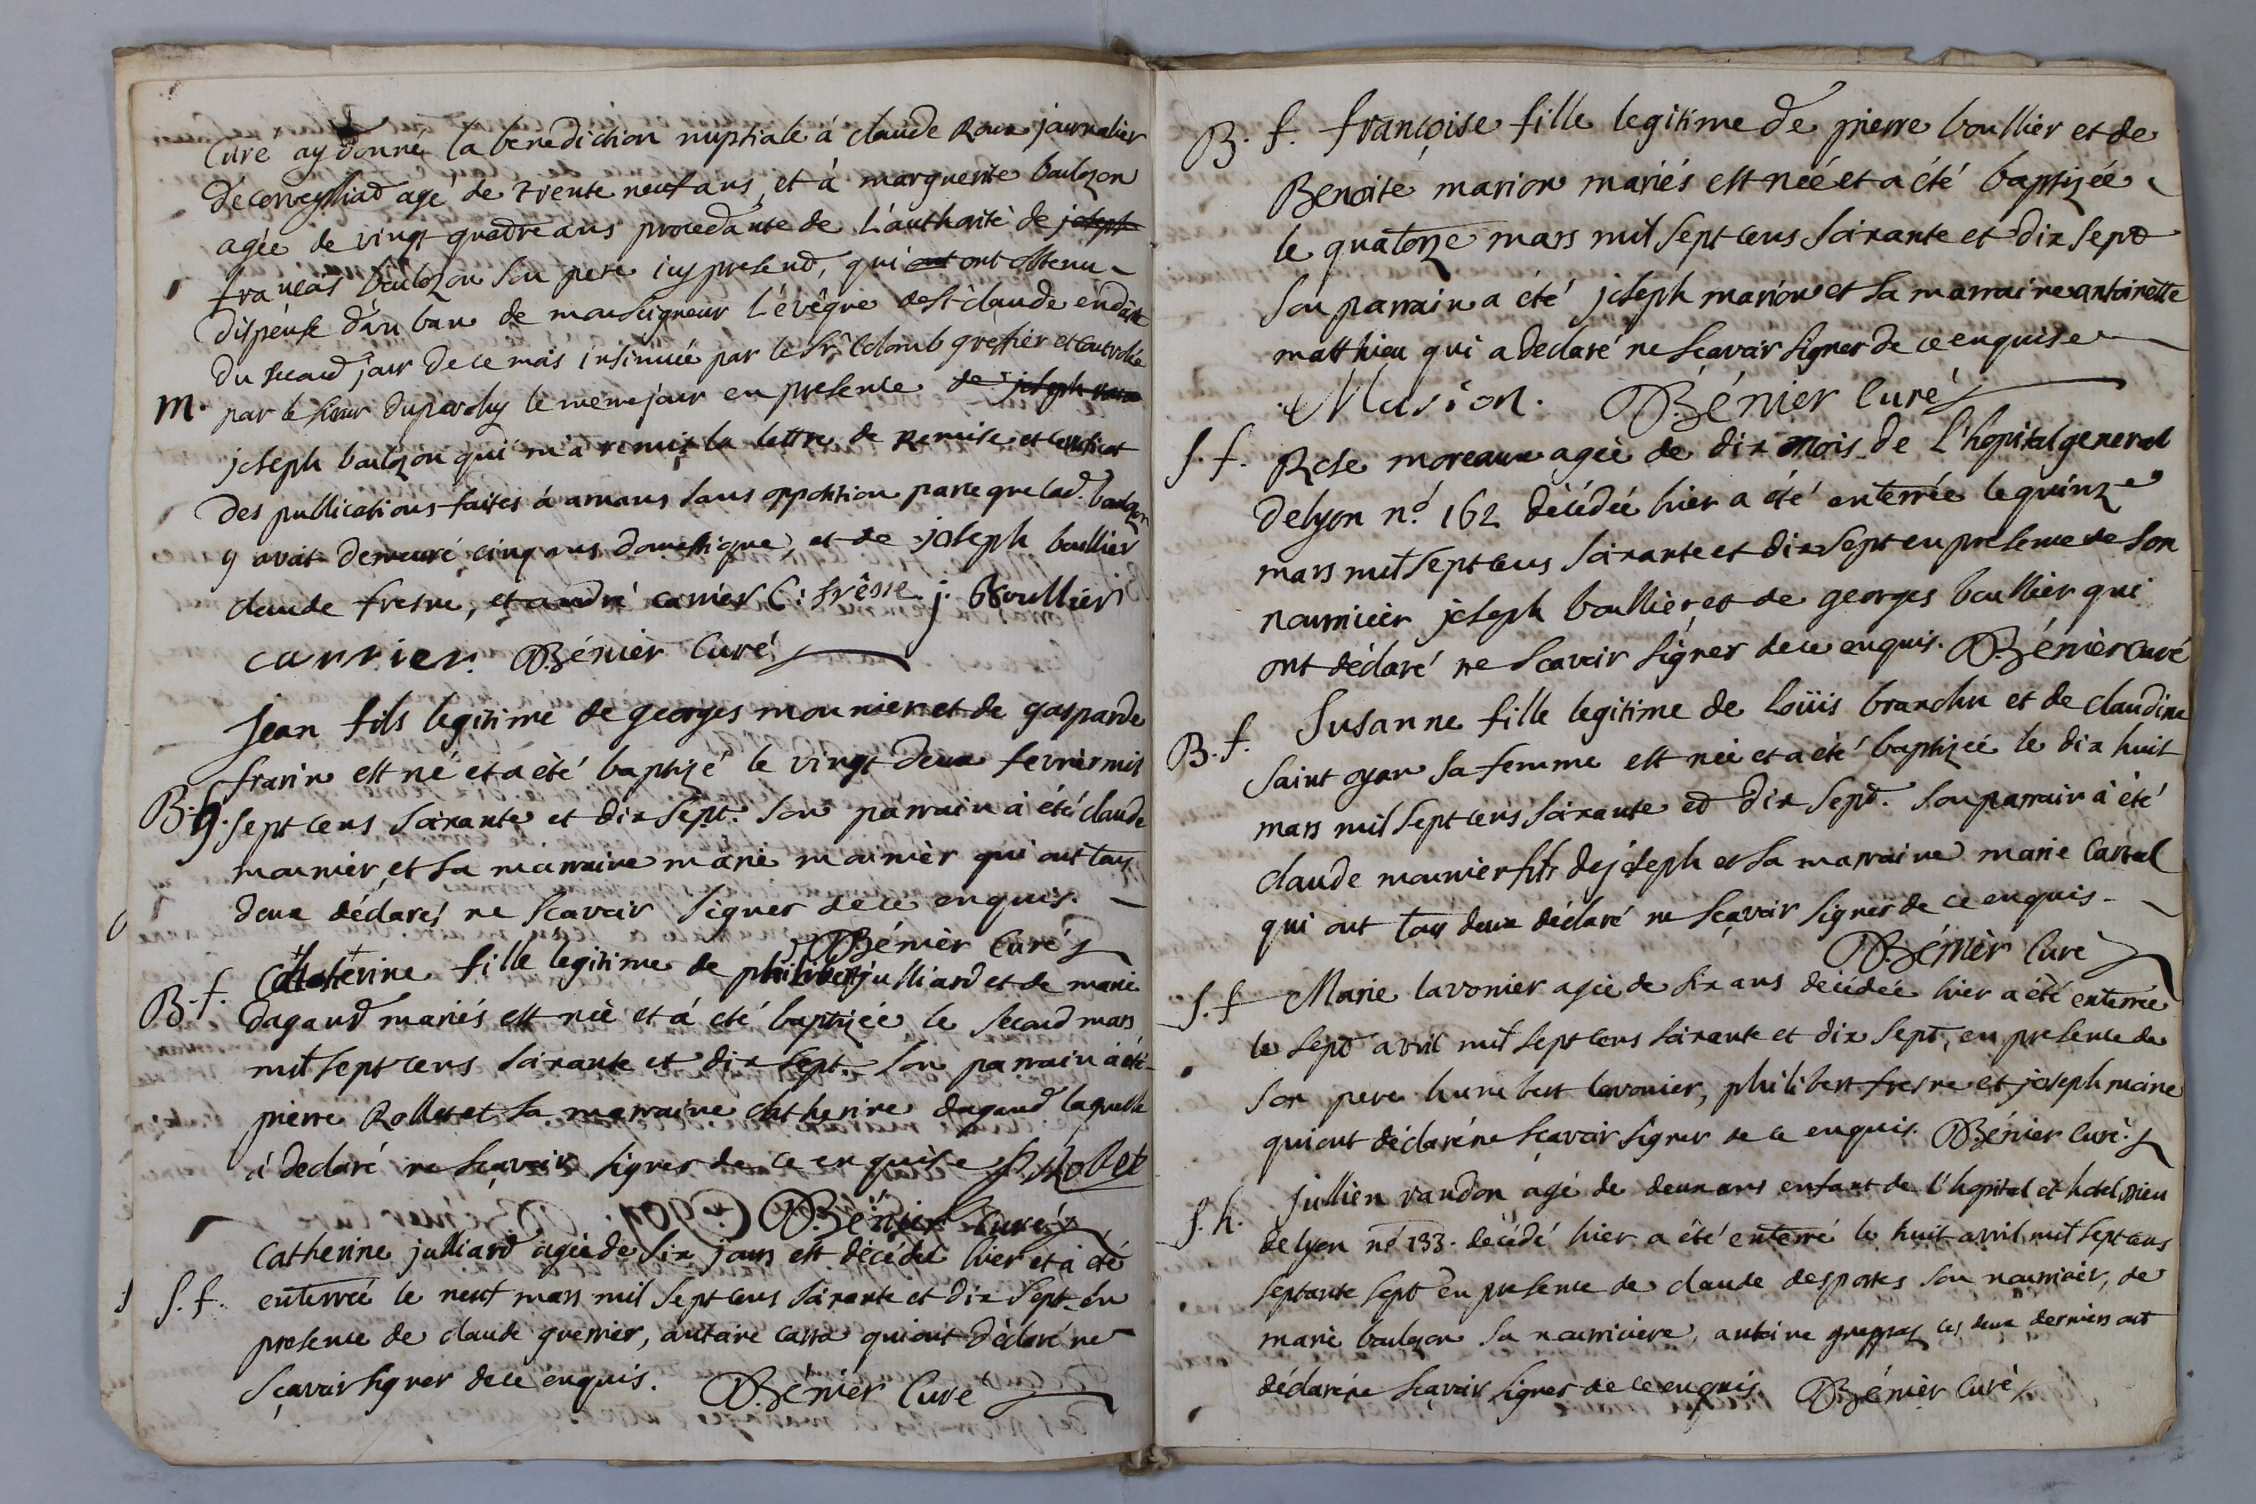 Curé ay donné la benediction nuptiale à claude Roux journalier
de corveyssiad agé de trente neuf ans, et à marguerite boulozon
agée de vingt quatre ans procedante de L'authorité de joseph
françois boulozon son pere icy present, qui ont ont obtenu
dispense d'un ban de monseigneur L'évêque de st claude en date
du second jour de ce mois insinuée par le Sr Colomb greffier et controlée
M. par le sieur duparchy le meme jour en presence de joseph
joseph boulozon qui m'a remis la lettre de Remise et certificat
des publications faites à arnans sans opposition parce que lad. boulozon
y avoit demeuré cinq ans domestique, et de joseph boullier
claude fresne, et andré carrier C: frêsne j. Boullier
carrier. Bénier Curé
Jean fils legitime de georges mounier et de gasparde
frarin est né et a été baptizé le vingt deux fevrier mil
B. g. sept cens soixante et dix sept. son parrain à été claude
mounier, et sa marraine marie mounier qui ont tous
deux déclarés ne sçavoir signer de ce enquis.
Bénier Curé
B. f. Catherine fille legitime de philibert julliard et de marie
dagand mariés est née et à été baptizée le second mars
mil sept cens soixante et dix sept. son parrain à été
pierre Rollet et sa marraine catherine dagand laquelle
à declaré ne sçavoir signer de ce enquise P. Rolet
Bénier Curé
Catherine julliard agée de six jours est décédée hier et à été
S. f. enterrée le neuf mars mil sept cens soixante et dix sept en
presence de claude guerrier, antoine carra qui ont déclaré ne
sçavoir signer de ce enquis. Bénier Curé
B. f. françoise fille legitime de pierre boullier et de
Benoite marion mariés est née et a été baptizée
le quatorze mars mil sept cens soixante et dix sept
son parrain a été joseph marion et sa marraine antoinette
matthieu qui a declaré ne sçavoir signer de ce enquise
Marion. Bénier Curé
S. f. Rose moreaux agée de dix mois de L'hopital general
de lyon n.º 162 décédée hier a été enterrée le quinze
mars mil sept cens soixante et dix sept en presence de son
nourricier joseph boullier, et de georges boullier qui
ont déclaré ne sçavoir signer de ce enquis. Bénier Curé
B. f. Susanne fille legitime de Loüis branchu et de claudine
saint oyan sa femme est née et a été baptizée le dix huit
mars mil sept cens soixante et dix sept. son parrain à été
claude mounier fils de joseph et sa marraine marie Cartal
qui ont tous deux déclaré ne sçavoir signer de ce enquis
Bénier Curé
S. f Marie lavonier agée de six ans décédée hier a été enterrée
le sept avril mil sept cens soixante et dix sept, en presence de
son pere humbert lavonier, philibert fresne et joseph moine
qui ont déclaré ne sçavoir signer de ce enquis. Bénier Curé
S. h. Jullien randon agé de deux ans enfant de l'hopital et hotel dieu
de lyon nº 133. décédé hier a été enterré le huit avril mil sept cens
septante sept en presence de claude desportes son nourricier, de
marie boulozon sa nourriciere, antoine ces deux derniers ont
déclaré ne sçavoir signer de ce enquis. Bénier Curé